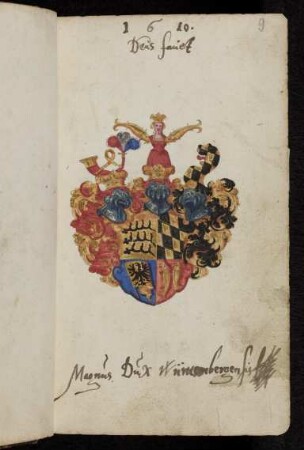 1610. 9
Deus fauet
Magnus Dux Wirtembergensis